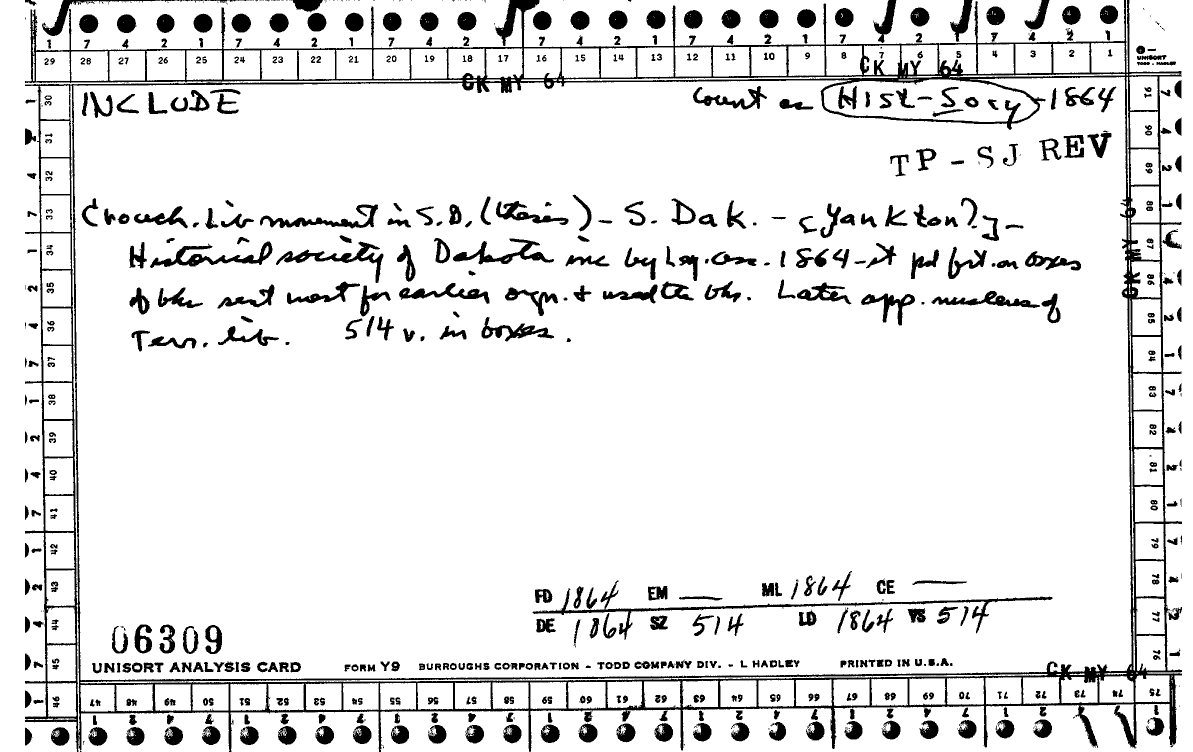 1 7 4 2 1 7 4 2 1 7 4 2 1 7 4 2 1 7 4 2 1 7 4 2 1 7 4 2 1
29 28 27 26 25 24 23 22 21 20 19 18 17 16 15 14 13 12 11 10 9 8 7 6 5 4 3 2 1
UNISORT
TODD - HADLEY
CK MY 64 CK MY 64
INCLUDE count as Hist-Socy-1864
TP-SJ REV
Crouch. Lib movement in S.D. (thesis) - S. Dak. - [Yankton?] -
Historical society of Dakota inc by Leg. 1864 - it pd frt. on boxes
of bks sent west for earlier orgn. & used the bks. Later app. nucleus of
Terr. lib. 514 v. in boxes.
CK MY 64
FD 1864 EM — ML 1864 CE —
DE 1864 SZ 514 LD 1864 VS 514
06309
UNISORT ANALYSIS CARD FORM Y9 BURROUGHS CORPORATION - TODD COMPANY DIV. - L HADLEY PRINTED IN U.S.A.
CK MY 64
30 31 32 33 34 35 36 37 38 39 40 41 42 43 44 45 46
47 48 49 50 51 52 53 54 55 56 57 58 59 60 61 62 63 64 65 66 67 68 69 70 71 72 73 74 75
76 77 78 79 80 81 82 83 84 85 86 87 88 89 90 91